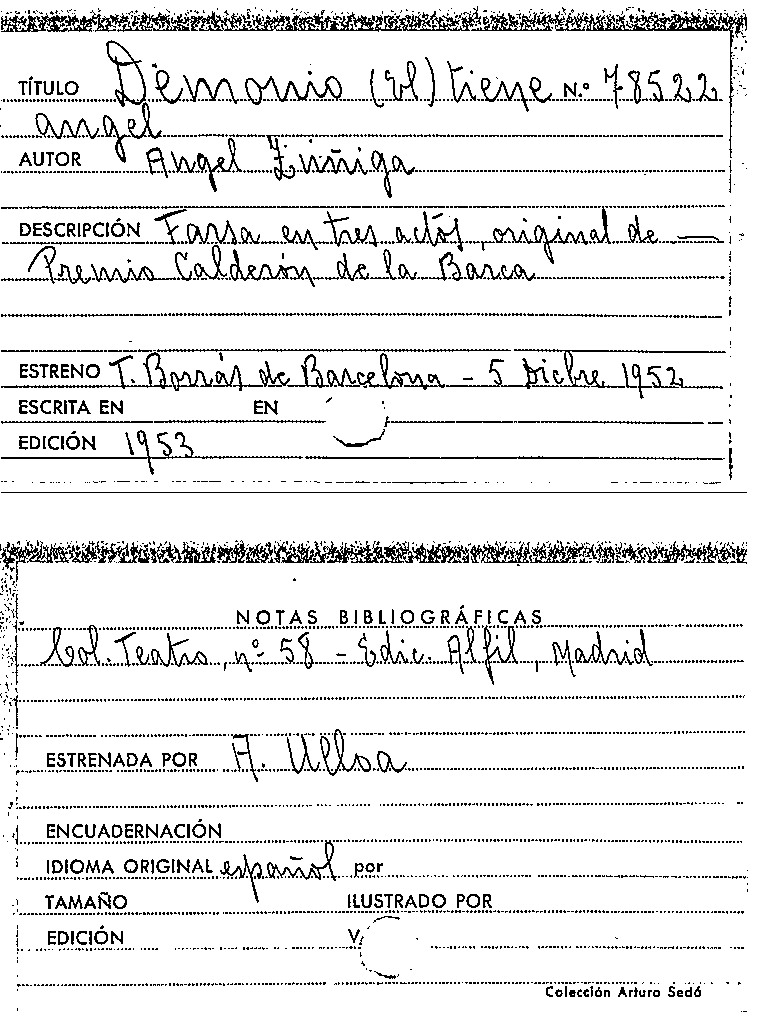 TÍTULO Demonio (El) tiene N.º 78522
angel
AUTOR Angel Zúñiga
DESCRIPCIÓN Farsa en tres actos, original de —
Premio Calderón de la Barca
ESTRENO T. Borrás de Barcelona - 5 Dicbre 1952
ESCRITA EN EN
EDICIÓN 1953
NOTAS BIBLIOGRÁFICAS
Col. Teatro, nº 58 - Edic. Alfil, Madrid
ESTRENADA POR A. Ulloa
ENCUADERNACIÓN
IDIOMA ORIGINAL español por
TAMAÑO ILUSTRADO POR
EDICIÓN V
Colección Arturo Sedó